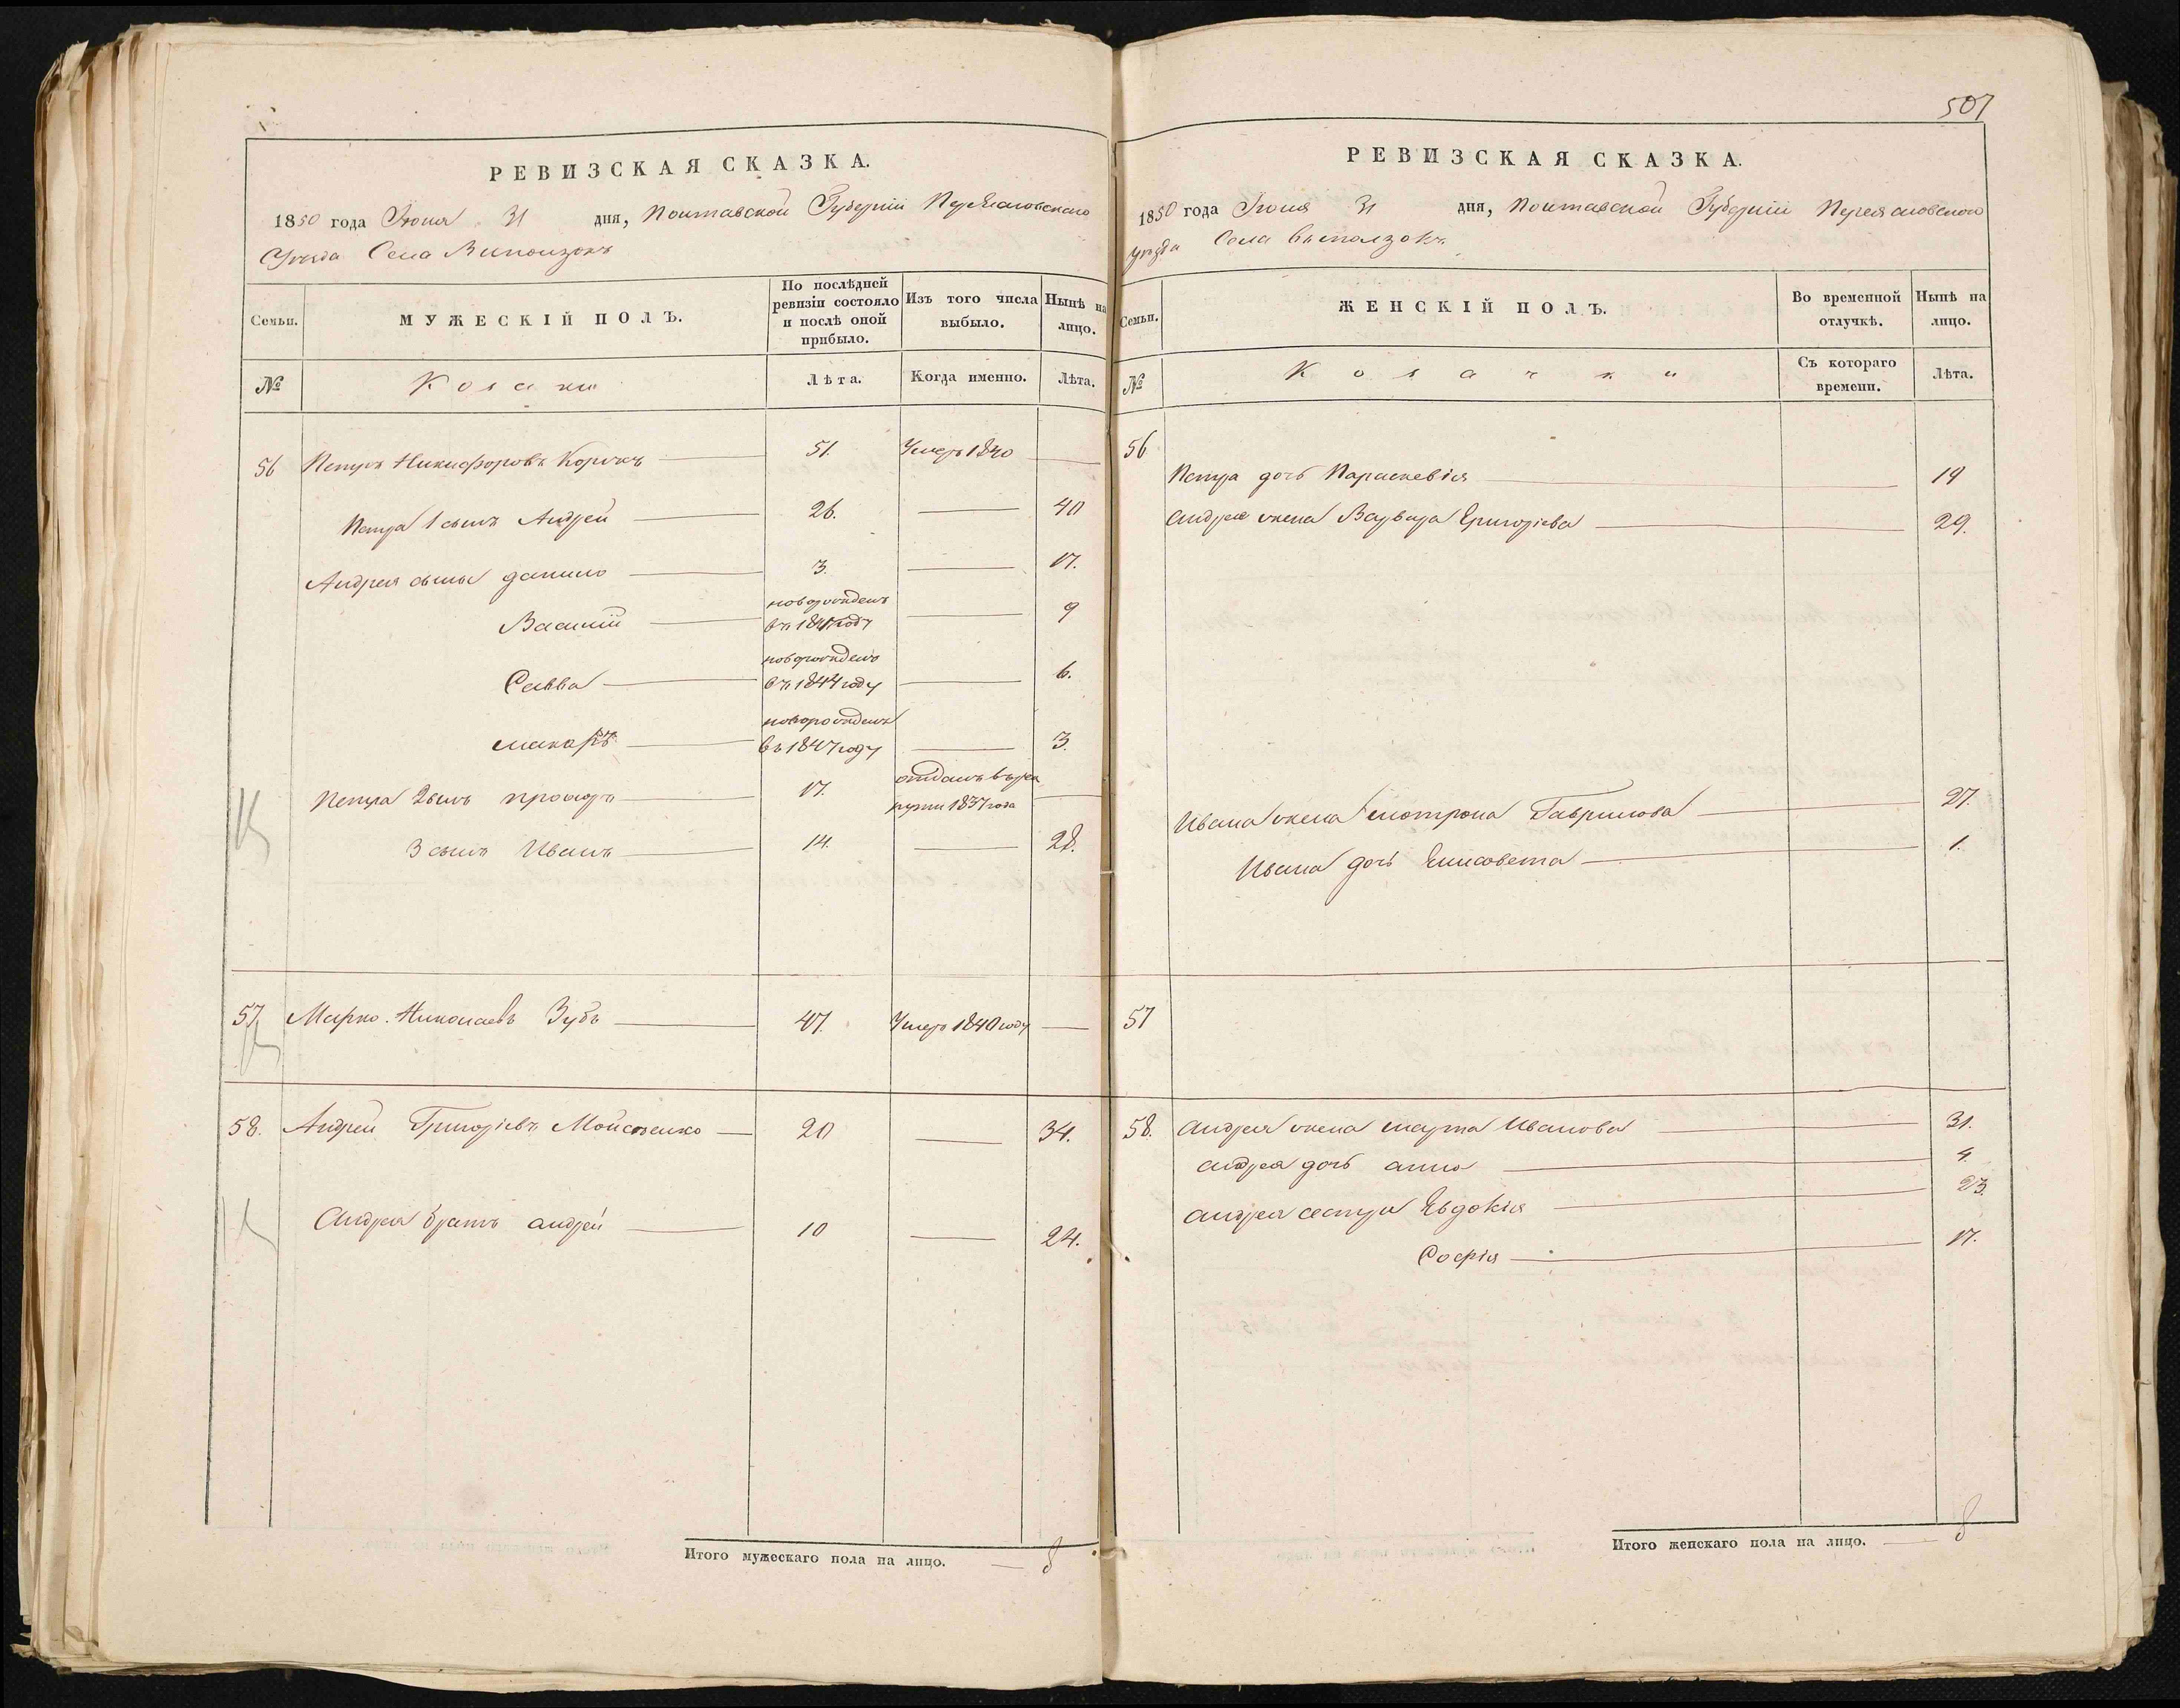 507
РЕВИЗСКАЯ СКАЗКА.
1850 года Июня 31 дня, Полтавской Губернии Переяславскаго
Уезда Села Виползокъ
Семьи.
МУЖЕСКІЙ ПОЛЪ.
По послѣдней ревизіи состояло и послѣ оной прибыло.
Изъ того числа выбыло.
Нынѣ на лицо.
№
Козаки
Лѣта.
Когда именно.
Лѣта.
56 Петръ Никифоровъ 51. Умеръ 1840
Петра 1 сынъ Андрей 26. 40
Андрея сыны данило 3. 17.
Василій новорожденъ въ 1841 году 9
Савва новорожденъ въ 1844 году 6.
макаръ новорожденъ въ 1847 году 3.
Петра 2 сынъ прохоръ 17. отданъ въ рекруты 1837 года
3 сынъ Иванъ 14. 28.
57 Марко Николаевъ Зубъ 47. Умеръ 1840 году
58. Андрей Григоріевъ Мойсеенко 20 34.
Андрея братъ андрей 10 24.
Итого мужескаго пола на лицо. 8
РЕВИЗСКАЯ СКАЗКА.
1850 года Июня 31 дня, Полтавской Губерніи Переяславского
уезда Села Выползокъ
Семьи.
ЖЕНСКІЙ ПОЛЪ.
Во временной отлучкѣ.
Нынѣ на лицо.
№
Козачки
Съ котораго времени.
Лѣта.
56
Петра дочь Параскевія 19
андрея жена Варвара Григоріева 29.
Ивана жена мотрона Гаврилова 27.
Ивана дочь Елисавета 1.
57
58. андрея жена марта Иванова 31.
андрея дочь анна 4.
андрея сестры Евдокія 23.
Софія 17.
Итого женскаго пола на лицо. 8